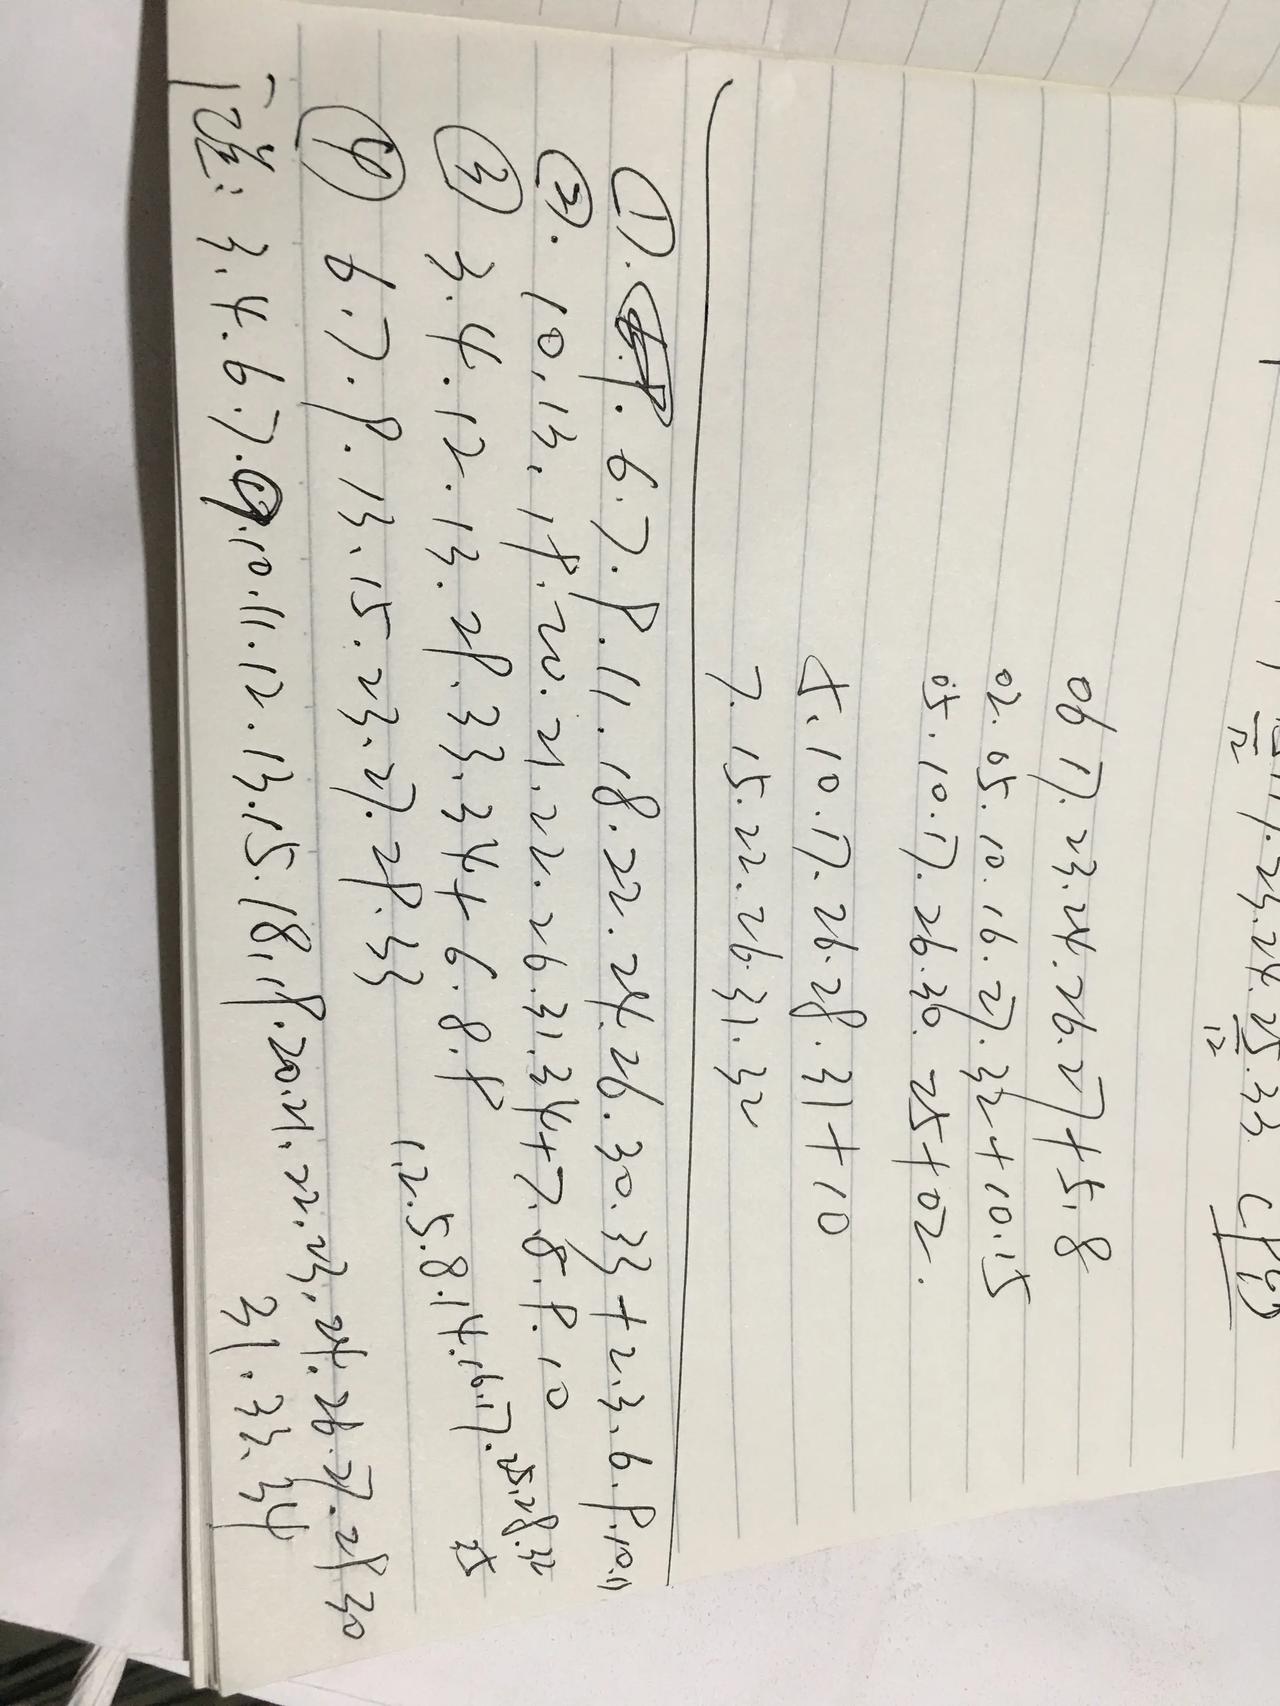 17.23.24.25.33.
12 12
06 17.23.24.26.27+5.8
02.05.10.16.27.32+10.15
05.10.17.26.30. 25+02.
5.10.17.26.29.31+10
7.15.22.26.31.32
①. 6.7.9.11.18.22.24.26.30.33+2.3.6.9.10.11
②. 10.13.19.20.21.22.26.31.34+7.8.9.10
③ 3.4.12.13.29.33.34+6.8.9
1.2.5.8.14.16.17.25.28.32
35
④ 6.7.9.13.15.23.27.29.33
选: 3.4.6.7.9.10.11.12.13.15.18.19.20.21.22.23.24.26.27.29 30
31.33.34